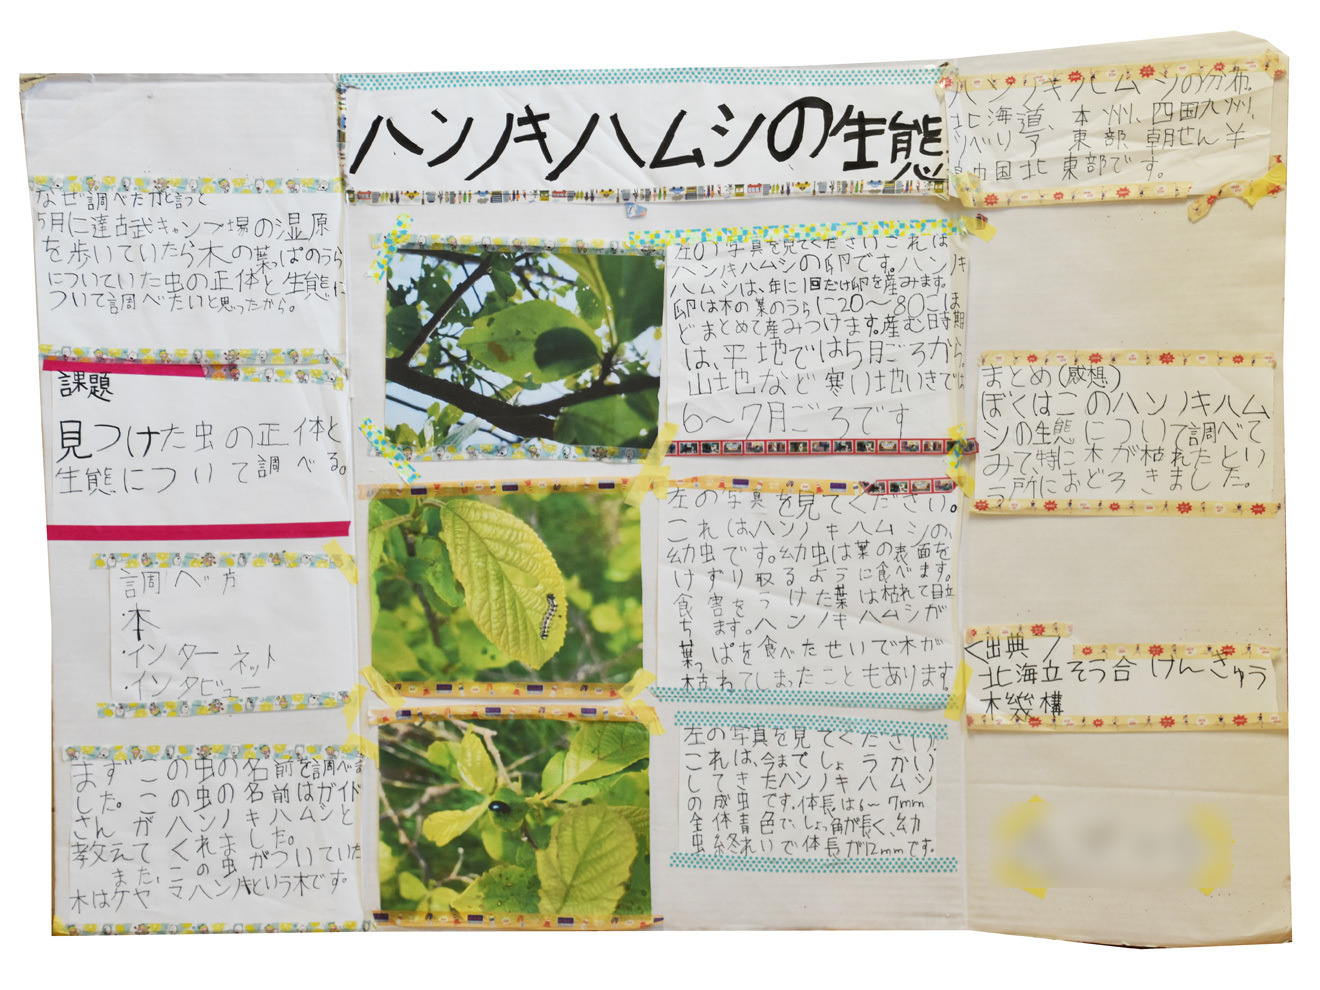 ハンノキハムシの生態
なぜ調べたかと言って
5月に達古武キャンプ場の湿原
を歩いていたら木の葉っぱのうら
についていた虫の正体と生態に
ついて調べたいと思ったから。
課題
見つけた虫の正体と
生態について調べる。
調べ方
・本
・インターネット
・インタビュー
まずこの虫の名前を調べま
した。この虫の名前はガイド
さんがハンノキハムシと
教えてくれました。
また、この虫がついていた
木はケヤマハンノキという木です。
左の写真を見てくださいこれは
ハンノキハムシの卵です。ハンノキ
ハムシは、年に1回だけ卵を産みます。
卵は木の葉のうらに20〜80こほ
どまとめて産みつけます。産む時期
は、平地では5月ごろから。
山地など寒い地いきでは
6〜7月ごろです
左の写真を見てください。
これはハンノキハムシの、
幼虫です。幼虫は葉の表面を
けずり取るように食べます。
食害をうけた葉は枯れて目立
ちます。ハンノキハムシが
葉っぱを食べたせいで木が
枯れてしまったこともあります
左の写真を見てください。
これは、今までしょうかい
してきたハンノキハムシ
の成虫です。体長は6〜7mm
全体青色で、しょっ角が長く、幼
虫終れいで体長が12mmです。
ハンノキハムシの分布。
北海道、本州、四国九州、
シベリア東部朝せん半
島中国北東部です。
まとめ(感想)
ぼくはこのハンノキハム
シの生態について調べて
みて、特に木が枯れたとい
う所におどろきました。
<出典>
北海立そう合けんきゅう
木幾構